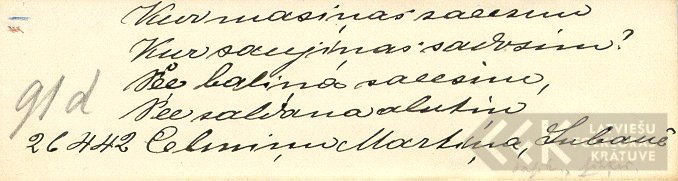 Kur masiņas sacesim
Kur saujiņas sadosim?
Pēc baliņa sacesim,
Pēc saldana alutiņ
91d
26442 Celmiņu Martiņa, Lubānē
LATVIEŠU
KRĀTUVE